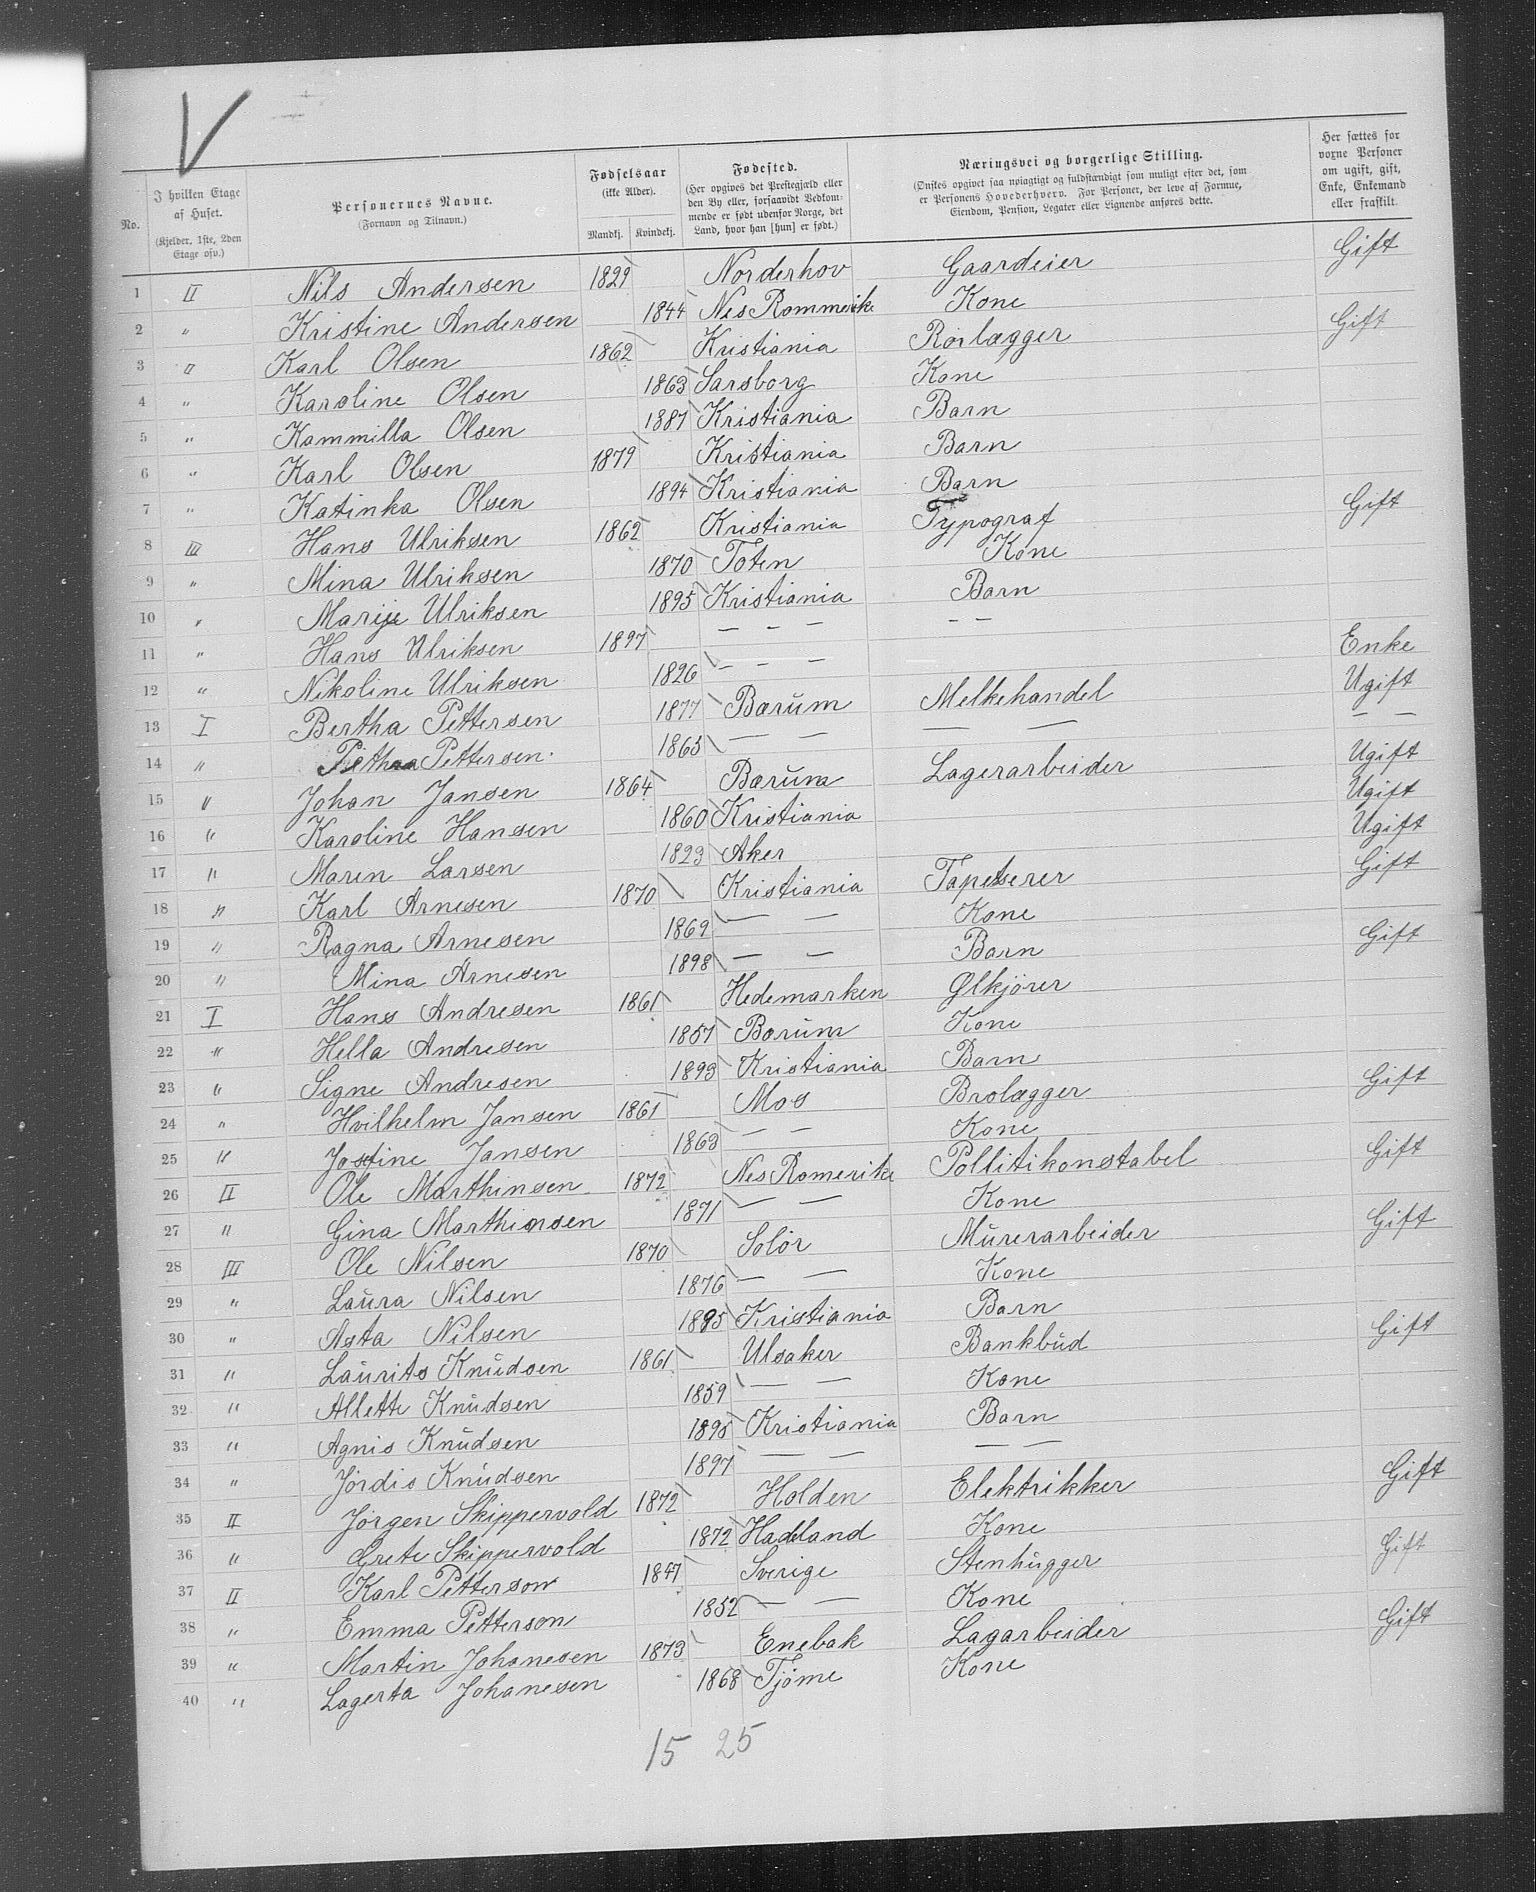 V
No.
I hvilken Etage af Huset.
(Kjelder, 1ste, 2den Etage osv.)
Personernes Navne.
(Fornavn og Tilnavn.)
Fødselsaar
(ikke Alder).
Mandkj. Kvindekj.
Fødested.
(Her opgives det Prestegjæld eller den By eller, forsaavidt Vedkommende er født udenfor Norge, det Land, hvor han [hun] er født.)
Næringsvei og borgerlige Stilling.
(Ønskes opgivet saa nøiagtigt og fuldstændigt som muligt efter det, som er Personens Hovederhverv. For Personer, der leve af Formue, Eiendom, Pension, Legater eller Lignende anføres dette.
Her sættes for voxne Personer om ugift, gift, Enke, Enkemand eller fraskilt.
1 II Nils Andersen 1829 Norderhov Gaardeier Gift
2 " Kristine Andersen 1844 Nes Rommerike Kone
3 " Karl Olsen 1862 Kristiania Rørlægger Gift
4 " Karoline Olsen 1863 Sarsborg Kone
5 " Kammilla Olsen 1887 Kristiania Barn
6 " Karl Olsen 1879 Kristiania Barn
7 " Katinka Olsen 1894 Kristiania Barn
8 III Hans Ulriksen 1862 Kristiania Typograf Gift
9 " Mina Ulriksen 1870 Toten Kone
10 " Marije Ulriksen 1895 Kristiania Barn
11 " Hans Ulriksen 1897 — — — — —
12 " Nikoline Ulriksen 1826 — — — Enke
13 I Bertha Pettersen 1877 Bærum Melkehandel Ugift
14 " Pettersen 1863 — — — — — —
15 " Johan Jansen 1864 Bærum Lagerarbeider Ugift
16 " Karoline Hansen 1860 Kristiania Ugift
17 " Maren Larsen 1823 Aker Ugift
18 " Karl Arnesen 1870 Kristiania Tapetserer Gift
19 " Ragna Arnesen 1869 — — Kone
20 " Mina Arnesen 1898 — — Barn
21 I Hans Andresen 1861 Hedemarken Ølkjører Gift
22 " Hella Andresen 1857 Bærum Kone
23 " Signe Andresen 1893 Kristiania Barn
24 " Hvilhelm Jansen 1861 Mos Brolægger Gift
25 " Josefine Jansen 1863 — — Kone
26 II Ole Marthinsen 1872 Nes Romerike Pollitikonstabel Gift
27 " Gina Marthinsen 1871 — — Kone
28 III Ole Nilsen 1870 Solør Murerarbeider Gift
29 " Laura Nilsen 1876 — — Kone
30 " Asta Nilsen 1895 Kristiania Barn
31 " Laurits Knudsen 1861 Ulsaker Bankbud Gift
32 " Allette Knudsen 1859 — — Kone
33 " Agnis Knudsen 1895 Kristiania Barn
34 " Jørdis Knudsen 1897 — — — —
35 II Jørgen Skippervold 1872 Holden Elektrikker Gift
36 " Grete Skippervold 1872 Hadeland Kone
37 II Karl Petterson 1847 Sverige Stenhugger Gift
38 " Emma Petterson 1852 — — Kone
39 " Martin Johanesen 1873 Enebak Lagarbeider Gift
40 " Lagerta Johanesen 1868 Tjøme Kone
15 25